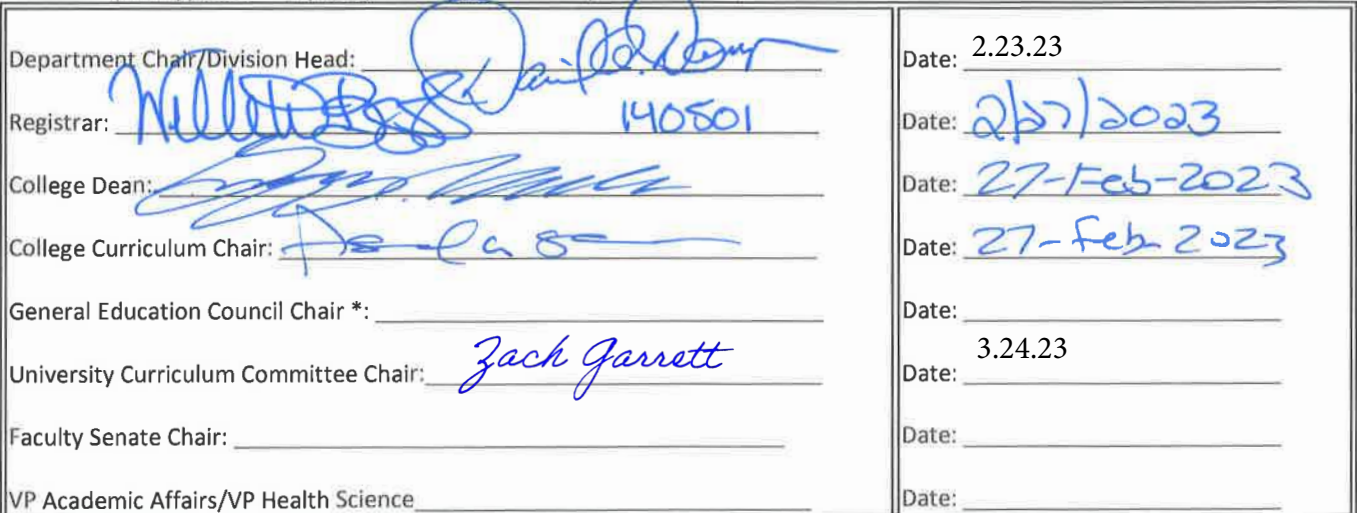 Department Chair/Division Head: Date: 2.23.23
Registrar: 140501 Date: 2/27/2023
College Dean: Date: 27-Feb-2023
College Curriculum Chair: Date: 27-Feb 2023
General Education Council Chair *: Date:
University Curriculum Committee Chair: Zach Garrett Date: 3.24.23
Faculty Senate Chair: Date:
VP Academic Affairs/VP Health Science Date: